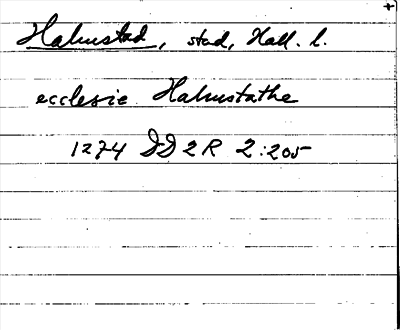 Halmstad, stad, Hall. l.
ecclesie Halmstathe
1274 DD 2 R 2:205